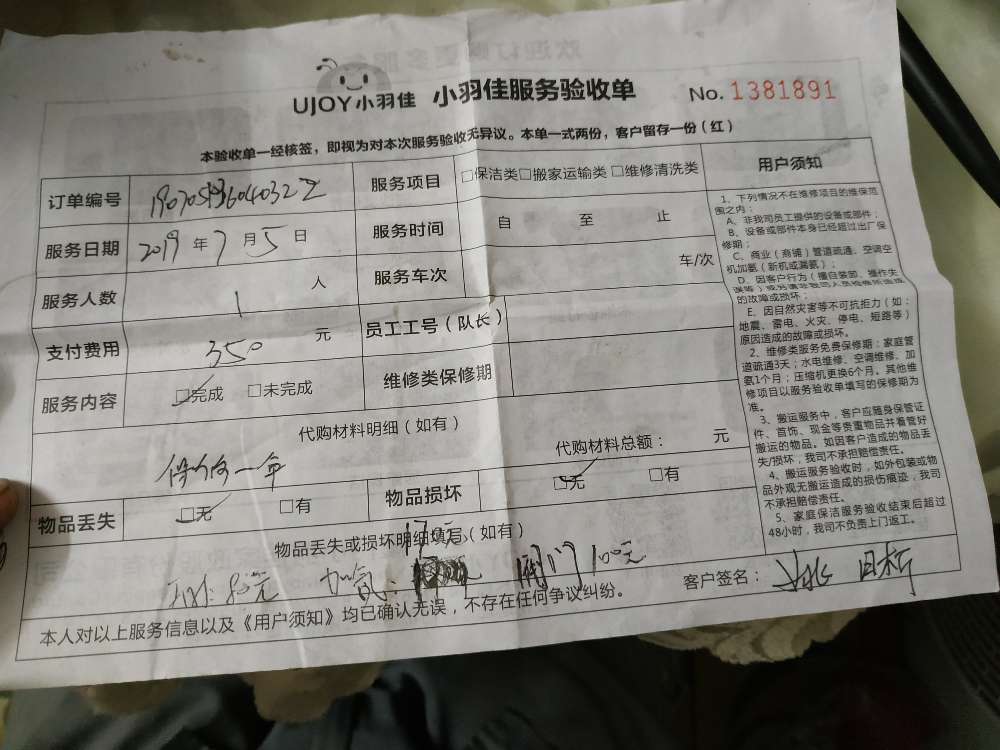 UJOY小羽佳 小羽佳服务验收单 No. 1381891
本验收单一经核签，即视为对本次服务验收无异议。本单一式两份，客户留存一份（红）
订单编号 服务项目 □保洁类□搬家运输类□维修清洗类
服务日期 2019 年 7 月 5 日 服务时间 自 至 止
服务人数 1 人 服务车次 车/次
支付费用 350 元 员工工号（队长）
服务内容 □完成 □未完成 维修类保修期
代购材料明细（如有）
代购材料总额： 元
一年
物品丢失 □无 □有 物品损坏 □无 □有
物品丢失或损坏明细填写（如有）
加氨： 阀门100元
客户签名：
本人对以上服务信息以及《用户须知》均已确认无误，不存在任何争议纠纷。
用户须知
1、下列情况不在维修项目的维保范
围之内：
A、非我司员工提供的设备或部件；
B、设备或部件本身已经超过出厂保
修期；
C、商业（商铺）管道疏通、空调空
机加氨（新机或漏氨）；
D、因客户行为（擅自装卸、操作失
的故障或损坏；
E、因自然灾害等不可抗拒力（如：
地震、雷电、火灾、停电、短路等）
原因造成的故障或损坏。
2、维修类服务免费保修期：家庭管
道疏通3天；水电维修、空调维修、加
氨1个月；压缩机更换6个月。其他维
修项目以服务验收单填写的保修期为
准。
3、搬运服务中，客户应随身保管证
件、首饰、现金等贵重物品并看管好
搬运的物品。如因客户造成的物品丢
失/损坏，我司不承担赔偿责任。
4、搬运服务验收时，如外包装或物
品外观无搬运造成的损伤痕迹，我司
不承担赔偿责任。
5、家庭保洁服务验收结束后超过
48小时，我司不负责上门返工。